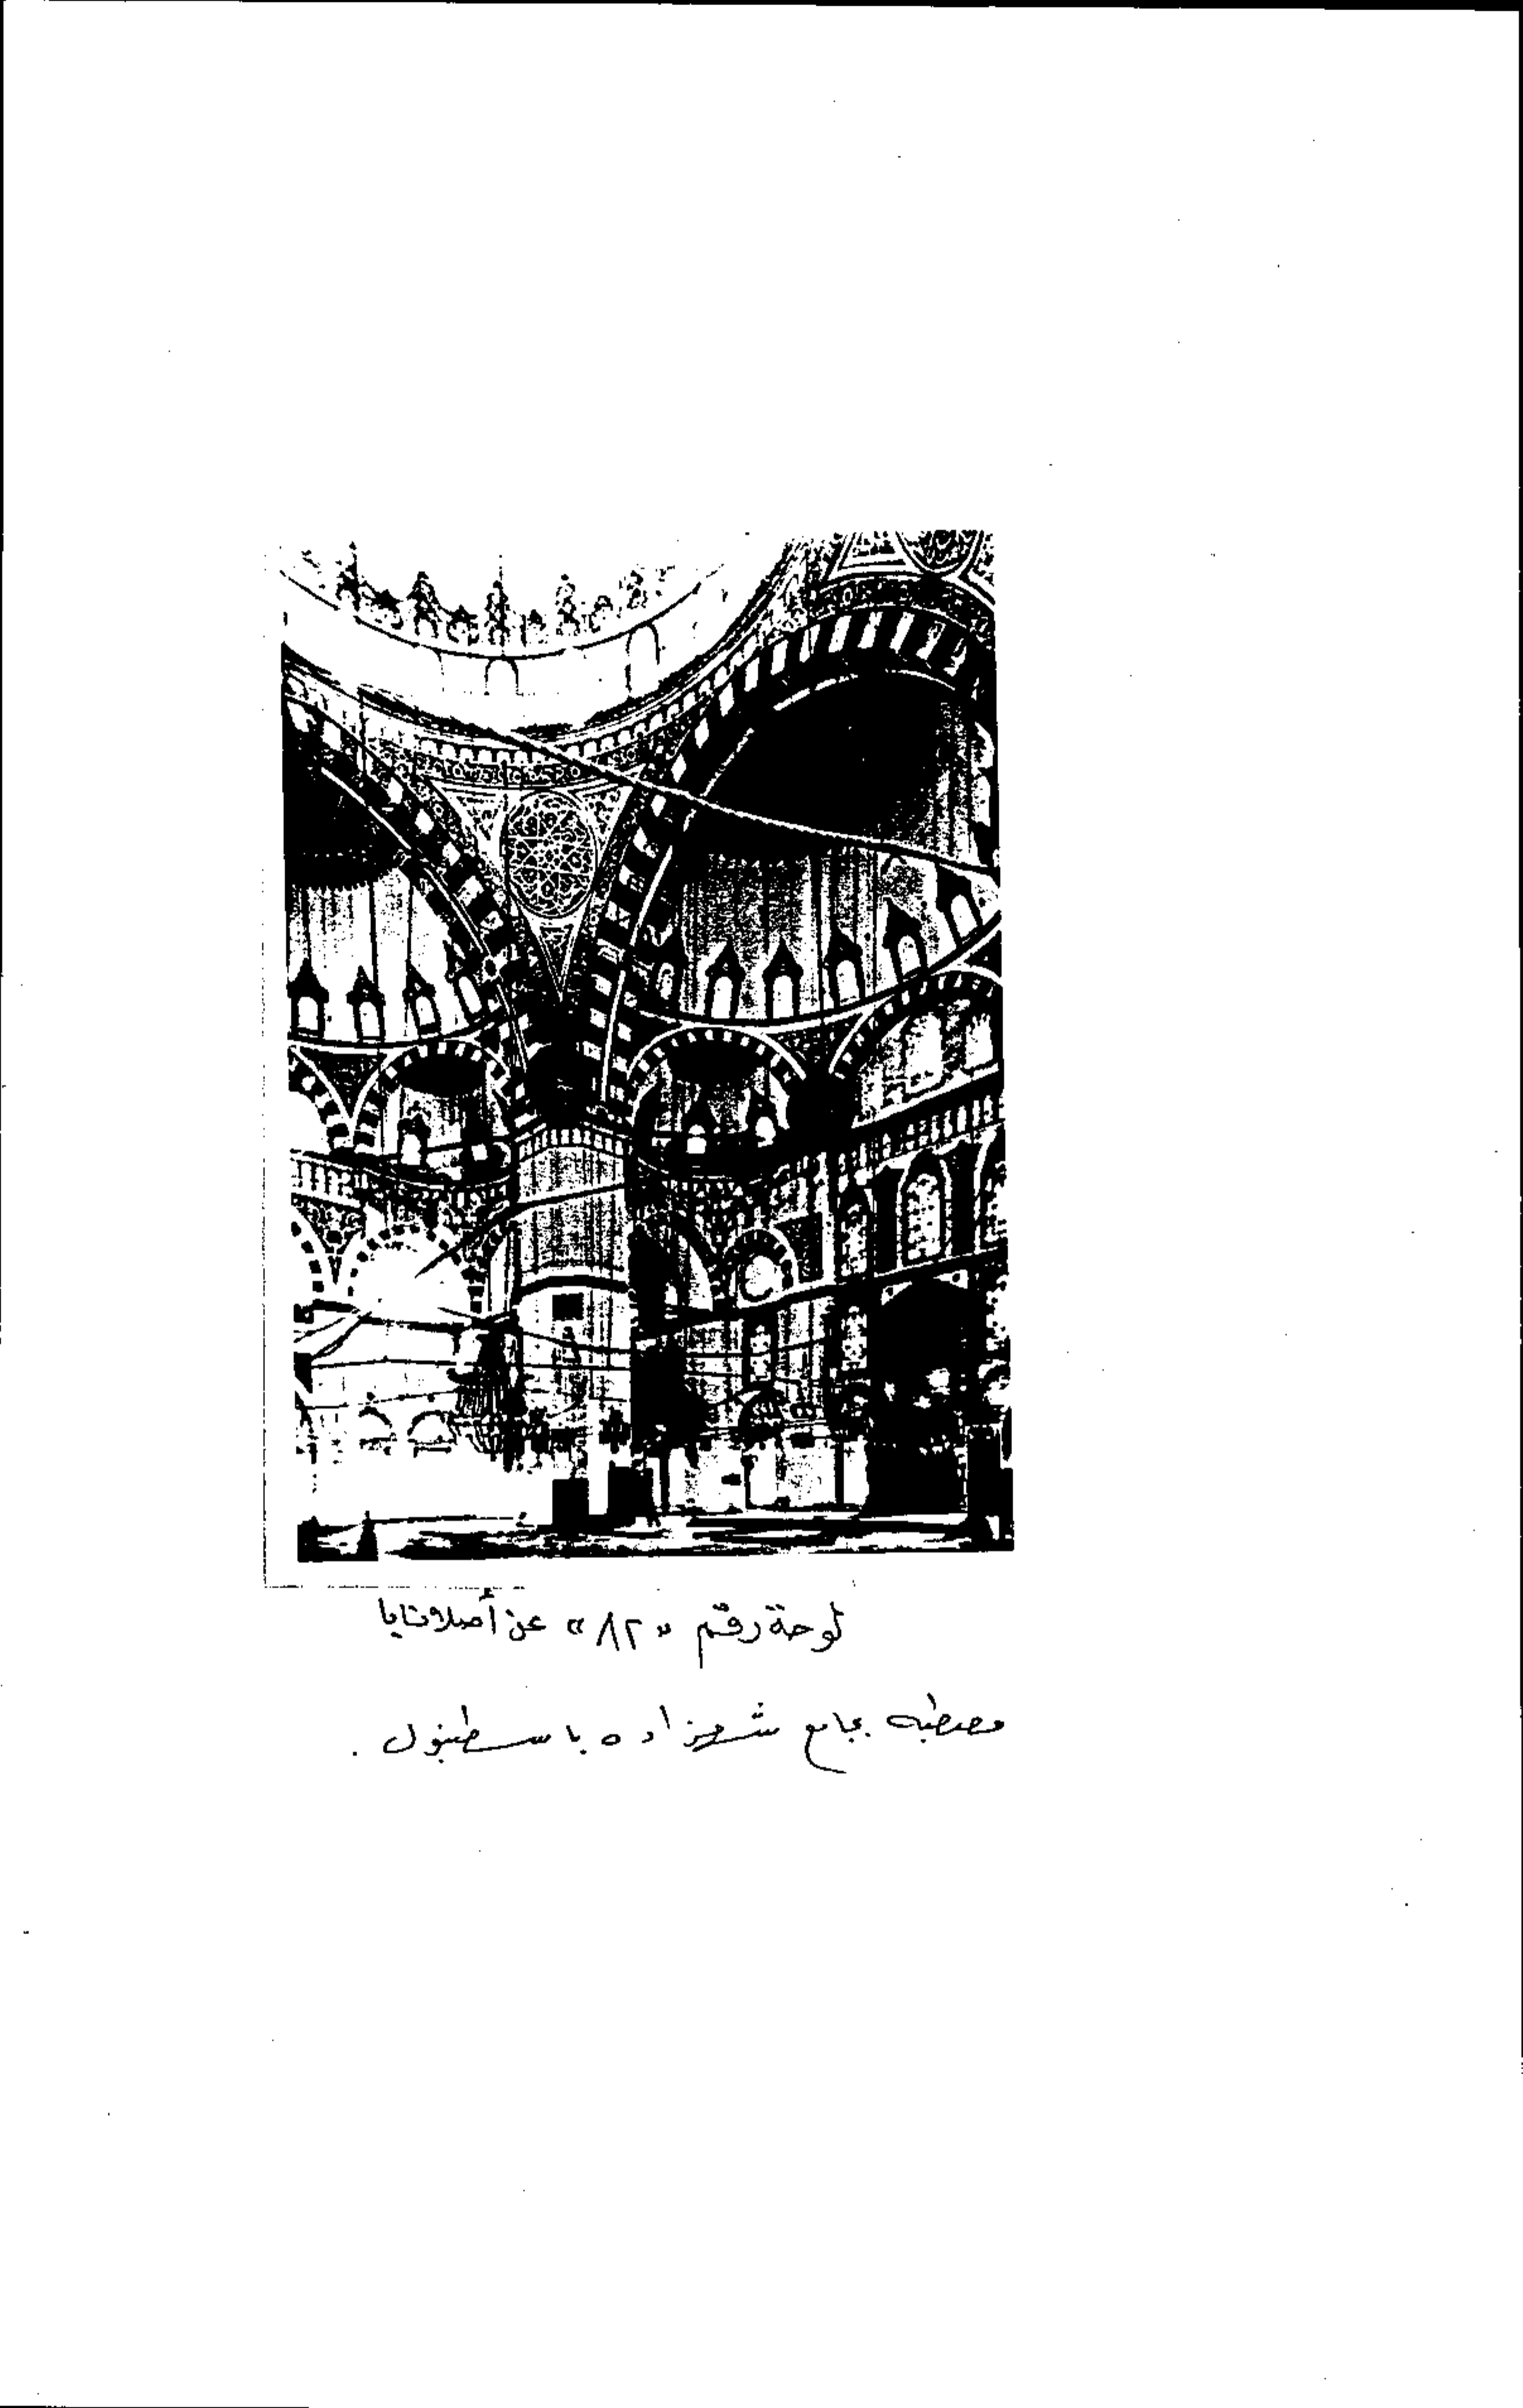 لوحة رقم «٨٢» عن أصلانابا
مصطبه بجامع شهزاده باسطنبول .